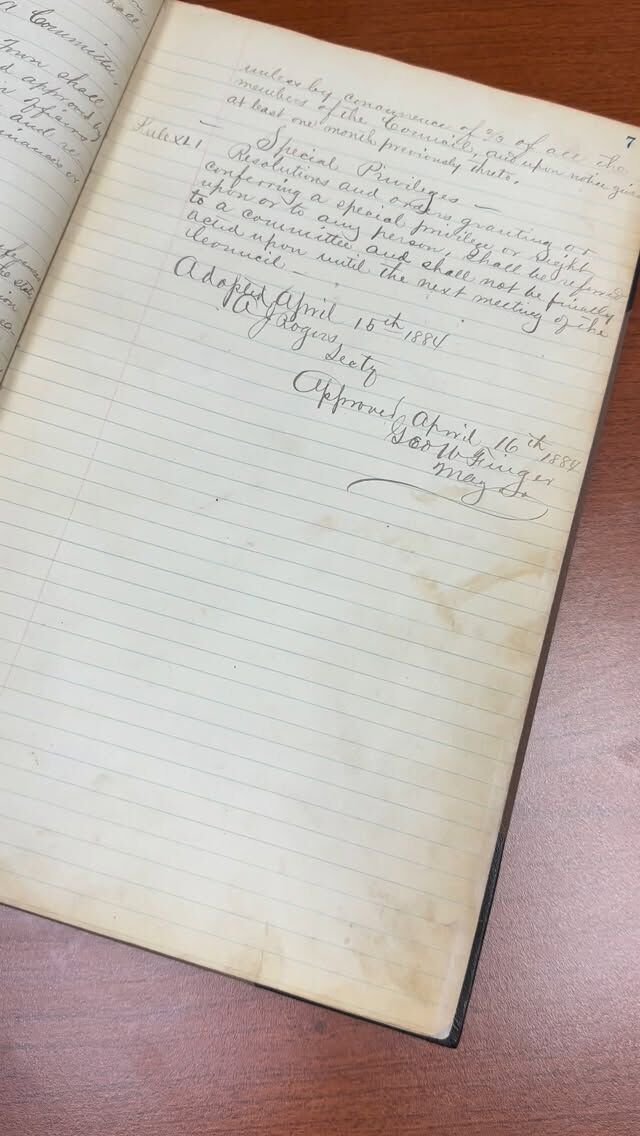 a Committee
Town shall
d approved by
and re
7
unless by concurrence of 2/3 of all the
members of the Council, and upon notice given
at least one month previously thereto.
Rule XLI
Special Privileges —
Resolutions and orders granting or
conferring a special privilege or right
upon or to any person, shall be referred
to a committee and shall not be finally
acted upon until the next meeting of the
Council —
Adopted April 15th 1884
A J Rogers
Secty
Approved April 16th 1884
Geo W Finger
Mayor